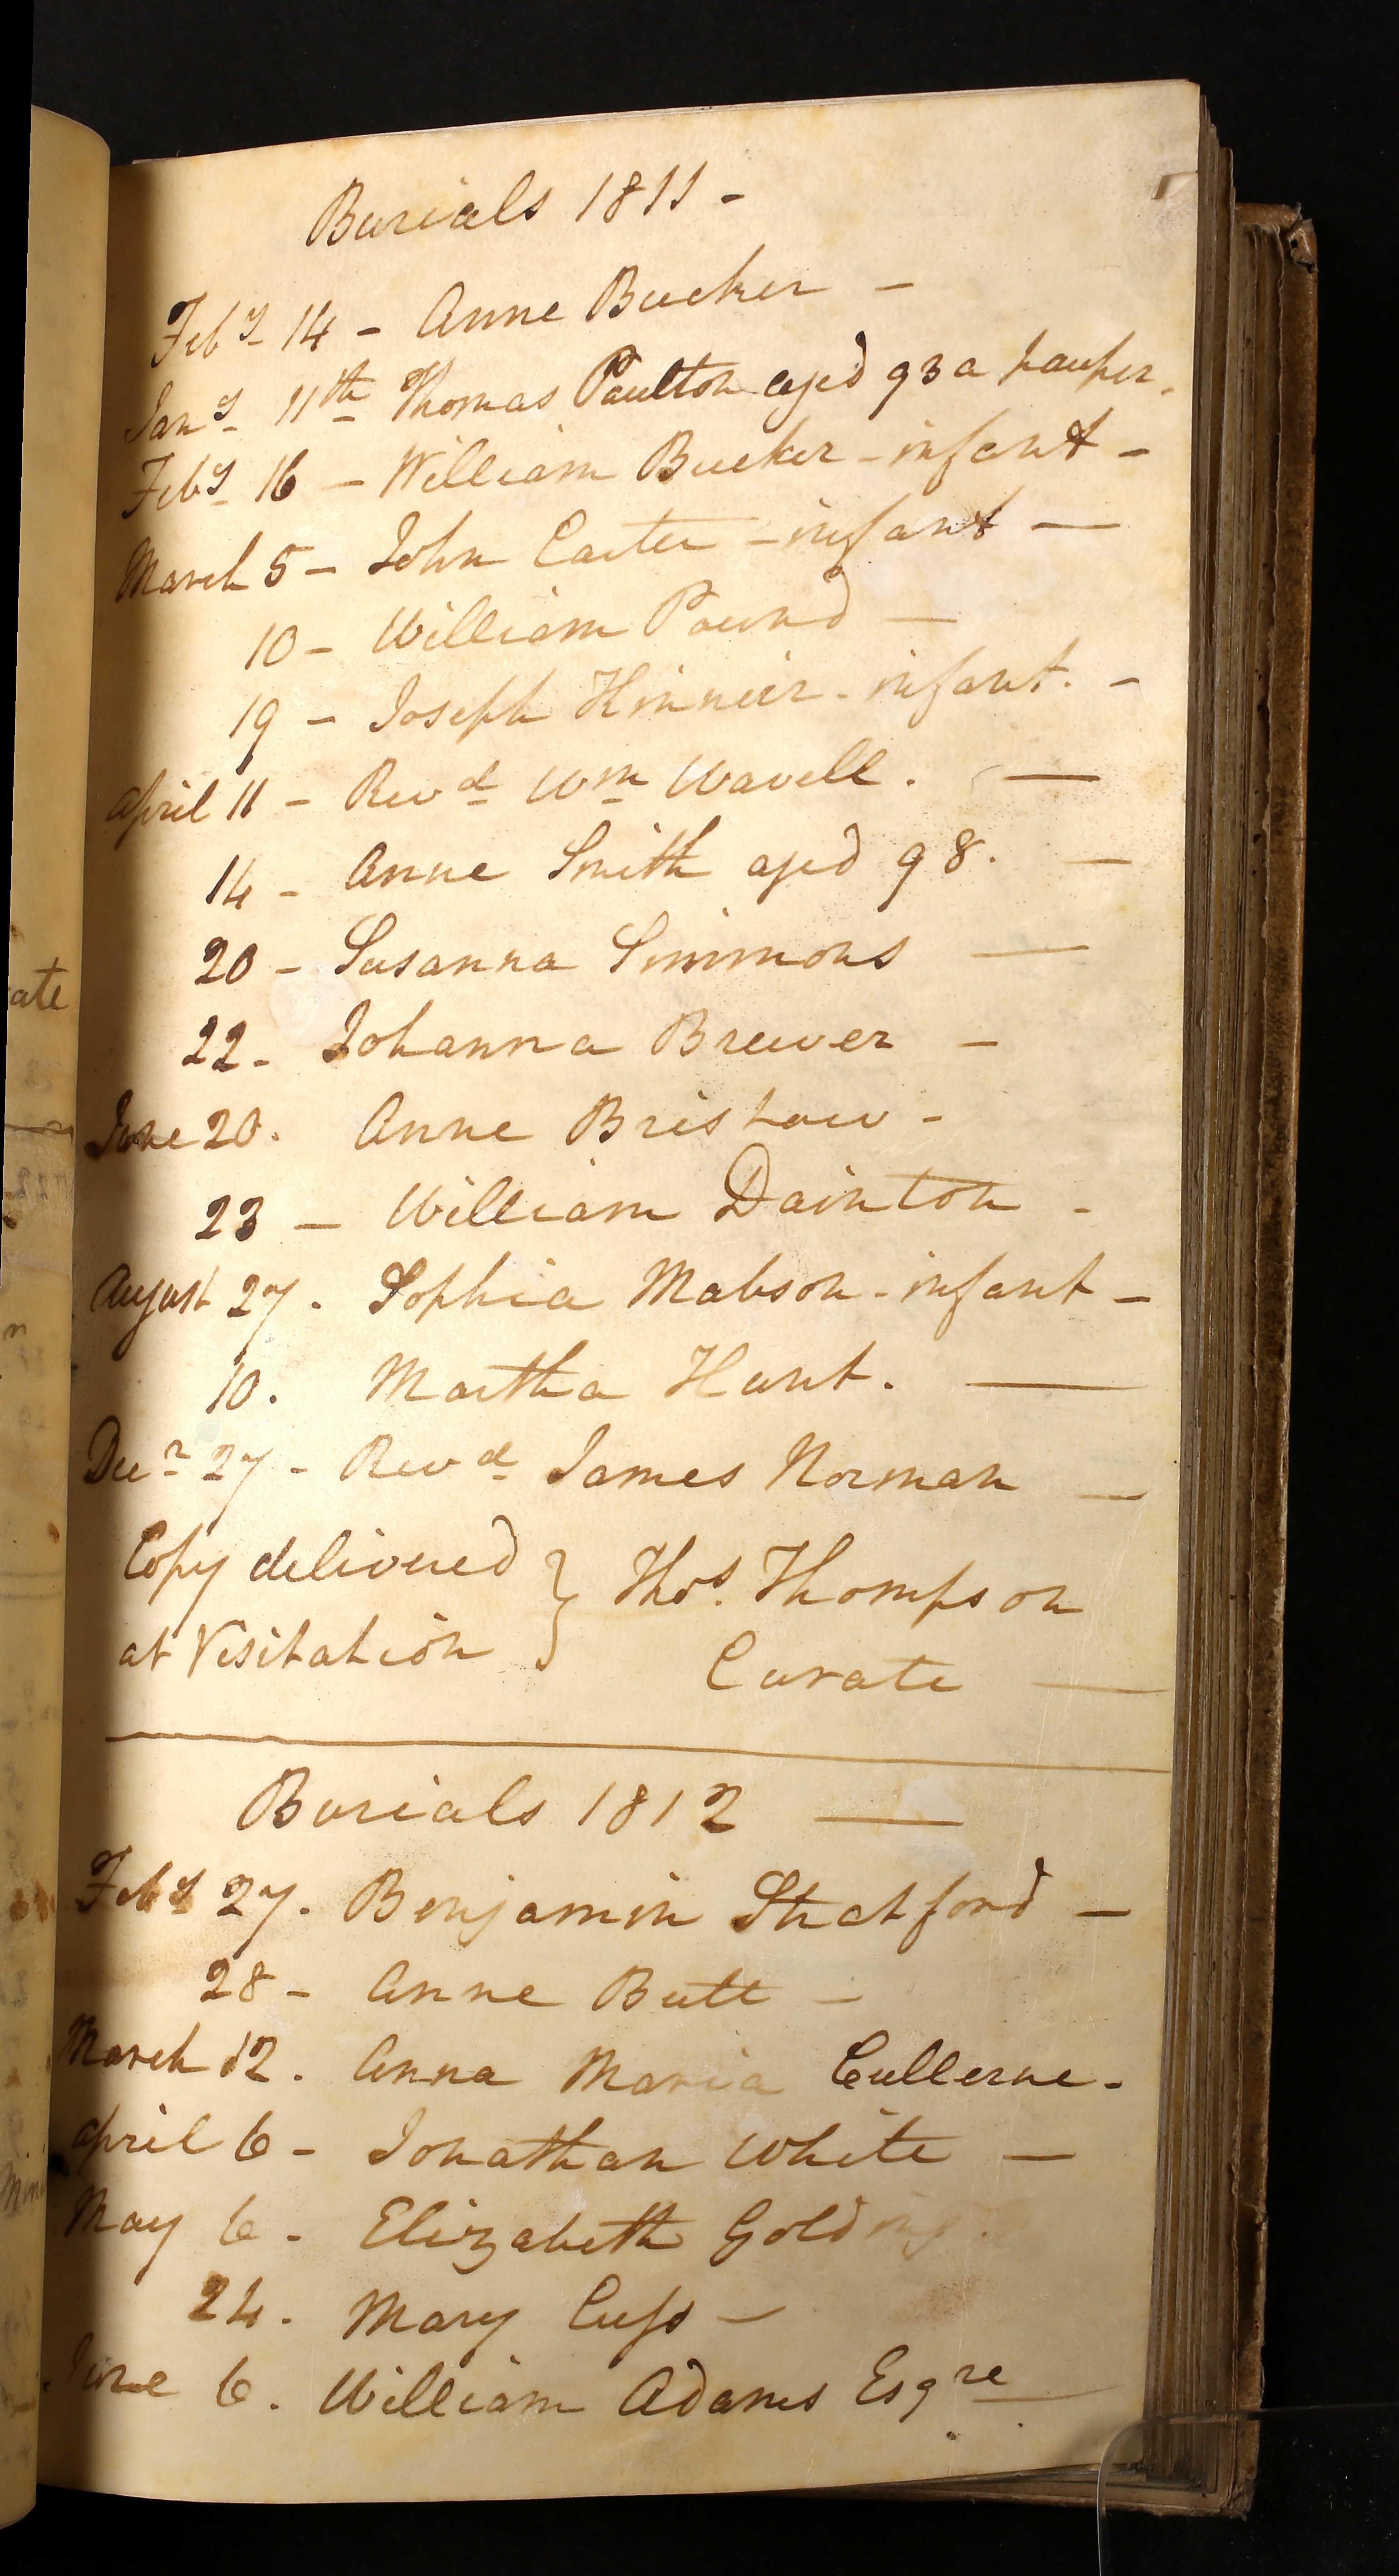 Burials 1811 -
Feby 14 - Anne Bucker -
Jany 11th Thomas Paulton aged 93 a pauper.
Feby 16 - William Bucker - infant -
March 5 - John Carter - infant -
10 - William Pound -
19 - Joseph Hinneir - infant. -
April 11 - Revd Wm Wavell. -
14 - Anne Smith aged 98. -
20 - Susanna Simmons -
22 - Johanna Brewer -
June 20. Anne Bristow -
23 - William Dainton -
August 27. Sophia Mabson - infant -
10. Martha Hunt. -
Decr 27 - Revd James Norman -
Copy delivered } Thos. Thompson
at Visitation } Curate -
Burials 1812 -
Feby 27. Benjamin Stratford -
28 - Anne Butt -
March 12. Anna Maria Cullerne -
April 6 - Jonathan White -
May 6 - Elizabeth Golding.
24. Mary Cuss -
June 6. William Adams Esqre
ate